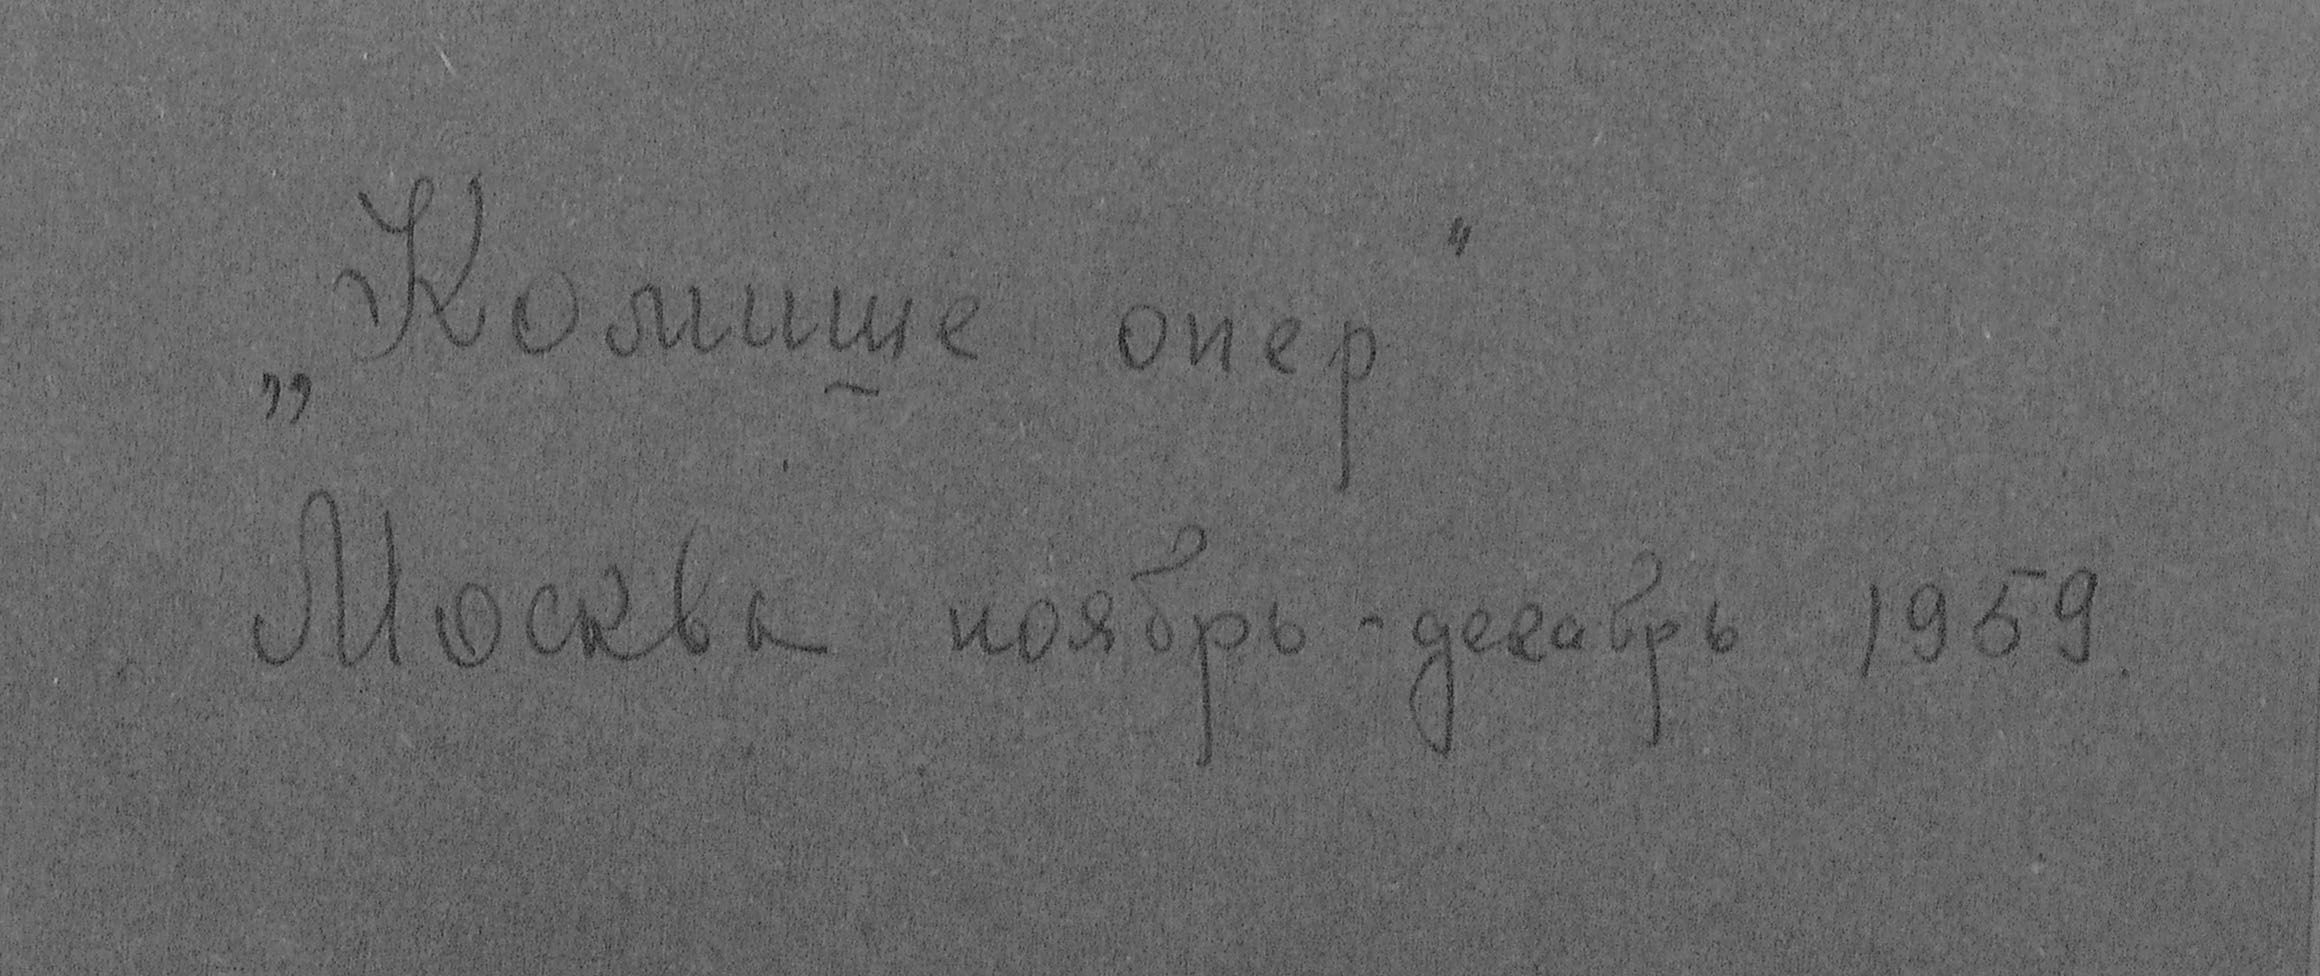 „Комише опер"
Москва ноябрь - декабрь 1959.